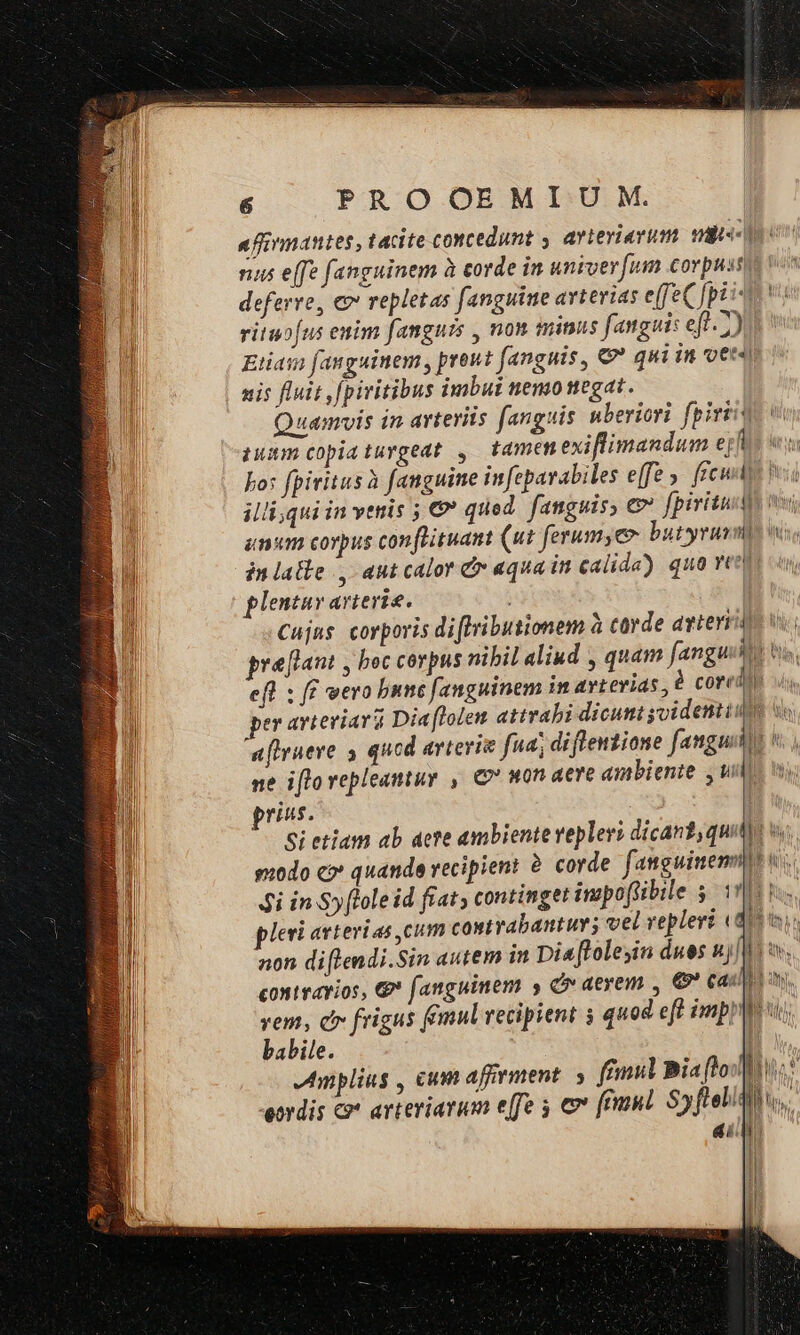 6 PROOEMIUM.
affirmantes, tacite concedunt, arteriarum
nus esse sanguinem à corde in universum corpus
deferre, & repletas sanguine arterias esse (spi-
rituosus enim sanguis, non minus sanguis est.)
Etiam sanguinem, prout sanguis, & qui in ve-
nis fluit, spiritibus imbui nemo negat.
Quamvis in arteriis sanguis uberiori spiri-
tuum copia turgeat, tamen existimandum est
hos spiritus à sanguine inseparabiles esse, sicut
illi, qui in venis; & quod sanguis, & spiritus
unum corpus constituant (ut serum, & butyrum
in lacte, aut calor & aqua in calida) quo re-
plentur arteriæ.
Cujus corporis distributionem à corde arteriæ
præstant, hoc corpus nihil aliud, quam sanguis
est: si vero hunc sanguinem in arterias, è corde
per arteriarū Diastolen attrahi dicunt; videntur
astruere, quod arteriæ suâ distentione sanguine
ne isto repleantur, & non aere ambiente, ut
prius.
Si etiam ab aere ambiente repleri dicant, quo
modo & quando recipient è corde sanguinem?
Si in Systole id fiat, continget impossibile;
pleri arterias, cum contrahantur; vel repleri &
non distendi. Sin autem in Diastole, in duos us
contrarios, & sanguinem, & aerem, & calo-
rem, & frigus simul recipient; quod est impro-
babile.
Amplius, cum affirment, simul Diastolen
cordis & arteriarum esse; & simul Systolen